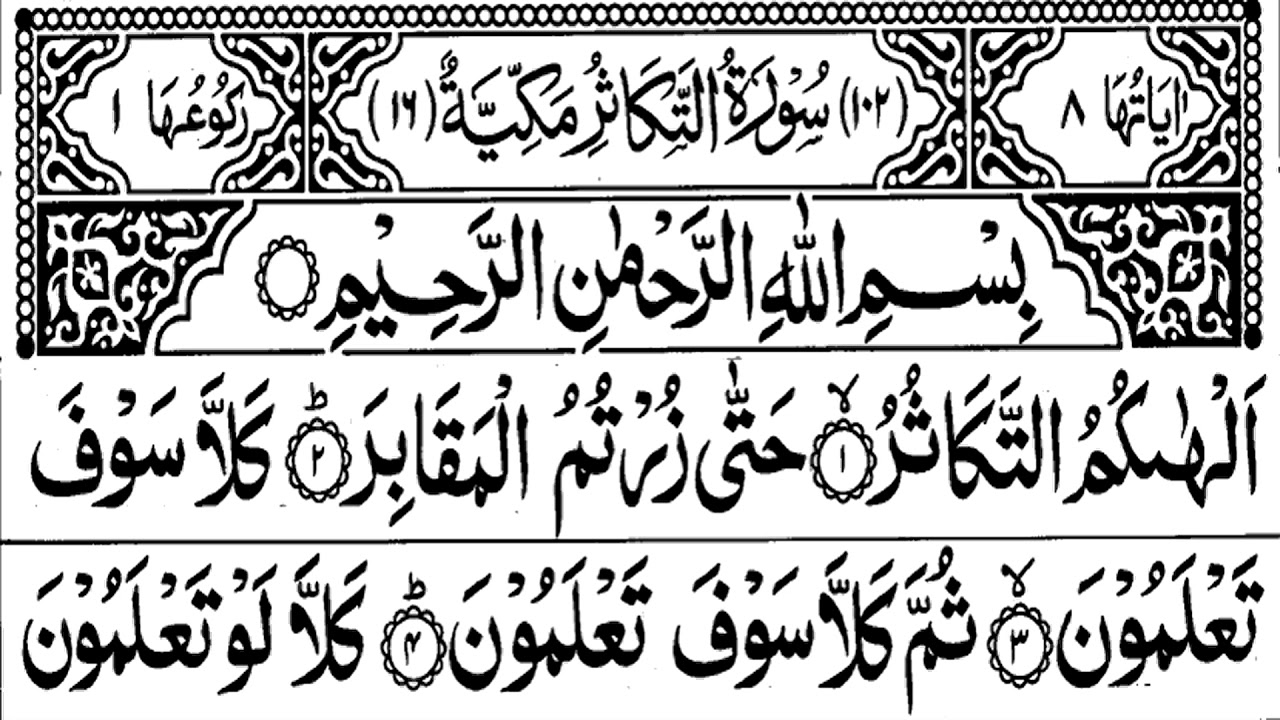 اٰيَاتُهَا ٨ (١٠٢) سُوْرَةُ التَّكَاثُرِ مَكِّيَّةٌ (١٦) رُكُوْعُهَا ١
بِسْمِ اللّٰهِ الرَّحْمٰنِ الرَّحِيْمِ
اَلْهٰىكُمُ التَّكَاثُرُ ۙ﴿۱﴾ حَتّٰى زُرْتُمُ الْمَقَابِرَ ؕ﴿۲﴾ كَلَّا سَوْفَ
تَعْلَمُوْنَ ۙ﴿۳﴾ ثُمَّ كَلَّا سَوْفَ تَعْلَمُوْنَ ؕ﴿۴﴾ كَلَّا لَوْ تَعْلَمُوْنَ